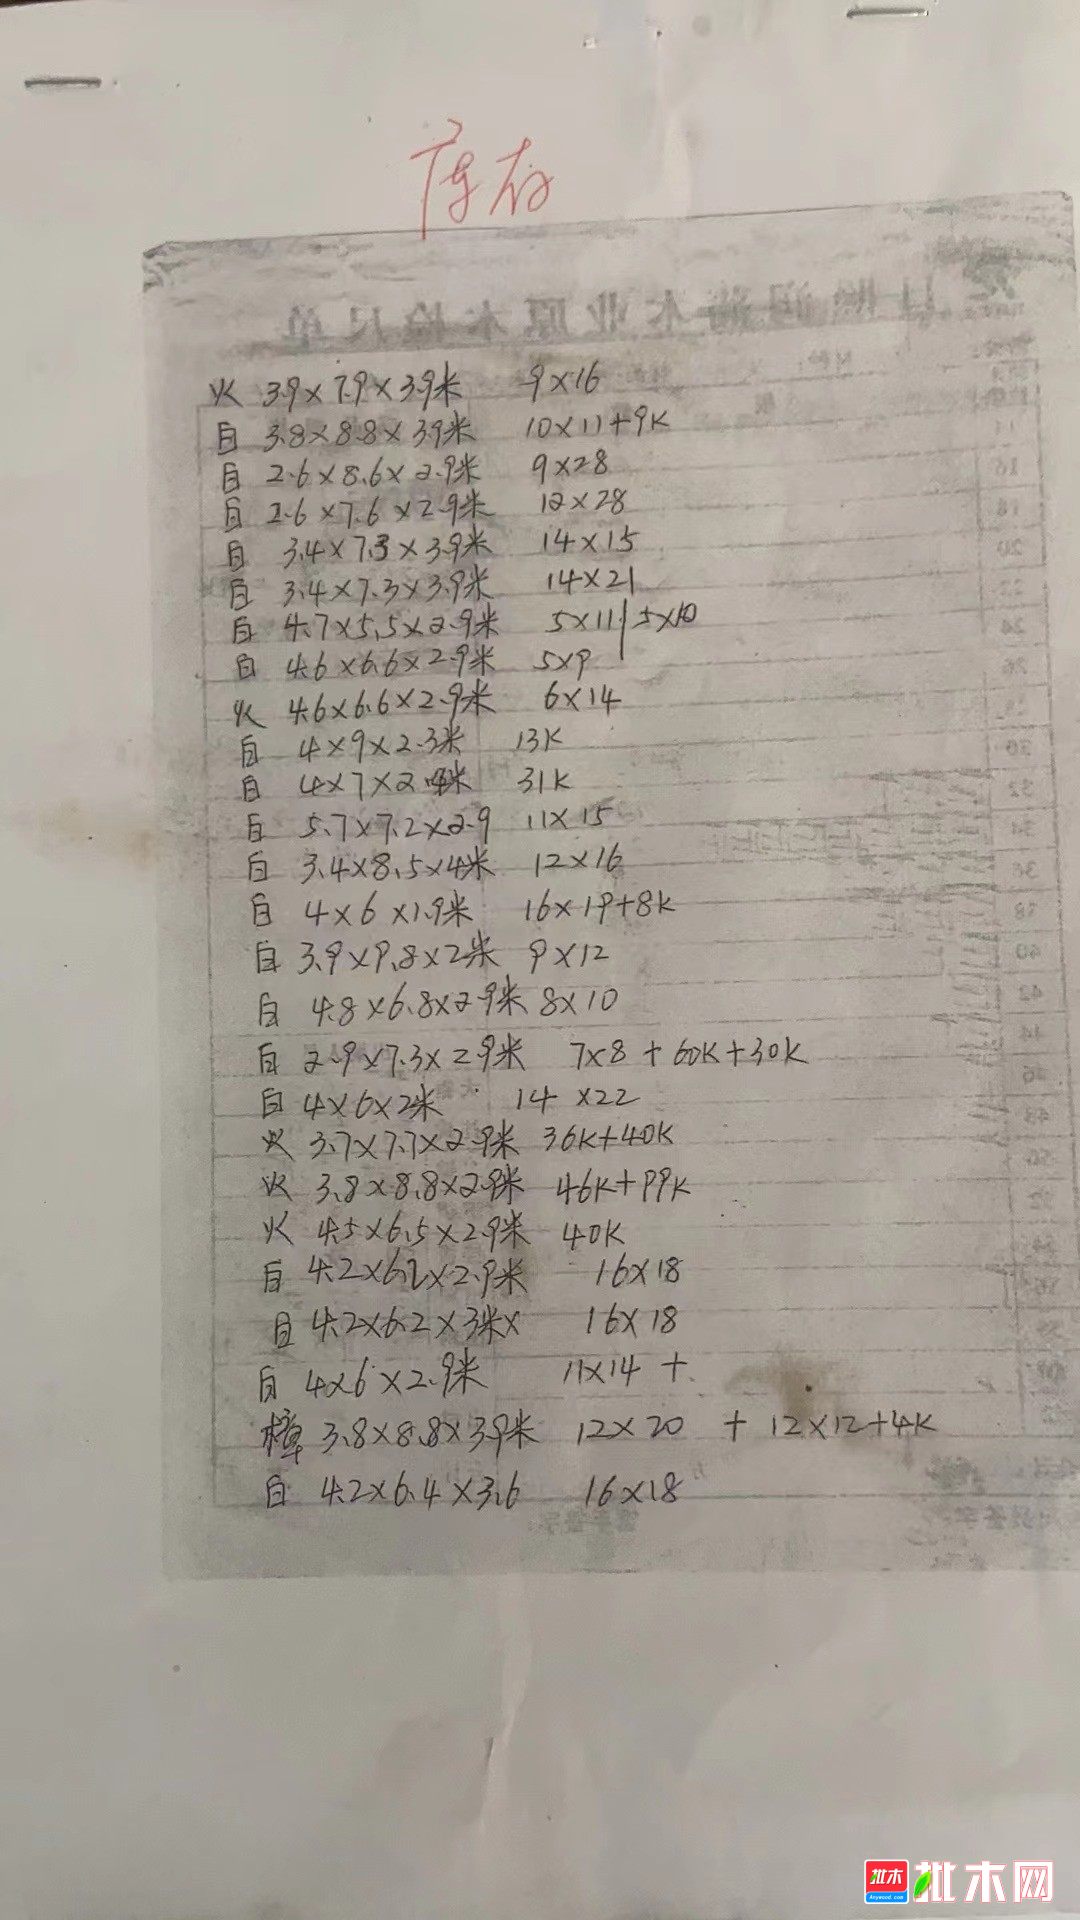 库存
火 3.9×7.9×3.9米 9×16
白 3.8×8.8×3.9米 10×11+9K
白 2.6×8.6×2.9米 9×28
白 2.6×7.6×2.9米 12×28
白 3.4×7.3×3.9米 14×15
白 3.4×7.3×3.9米 14×21
白 4.7×5.5×2.9米 5×11 | 5×10
白 4.6×6.6×2.9米 5×9
火 4.6×6.6×2.9米 6×14
白 4×9×2.3米 13K
白 4×7×2.米 31K
白 5.7×7.2×2.9 11×15
白 3.4×8.5×4米 12×16
白 4×6×1.9米 16×19+8K
白 3.9×9.8×2米 9×12
白 4.8×6.8×2.9米 8×10
白 2.9×7.3×2.9米 7×8+60K+30K
白 4×6×2米 14×22
火 3.7×7.7×2.9米 36K+40K
火 3.8×8.8×2.9米 46K+99K
火 4.5×6.5×2.9米 40K
白 4.2×6.2×2.9米 16×18
白 4.2×6.2×3米× 16×18
白 4×6×2.9米 11×14 +
樟 3.8×8.8×3.9米 12×20 + 12×12+4K
白 4.2×6.4×3.6 16×18
批木
Anywood.com
批木网